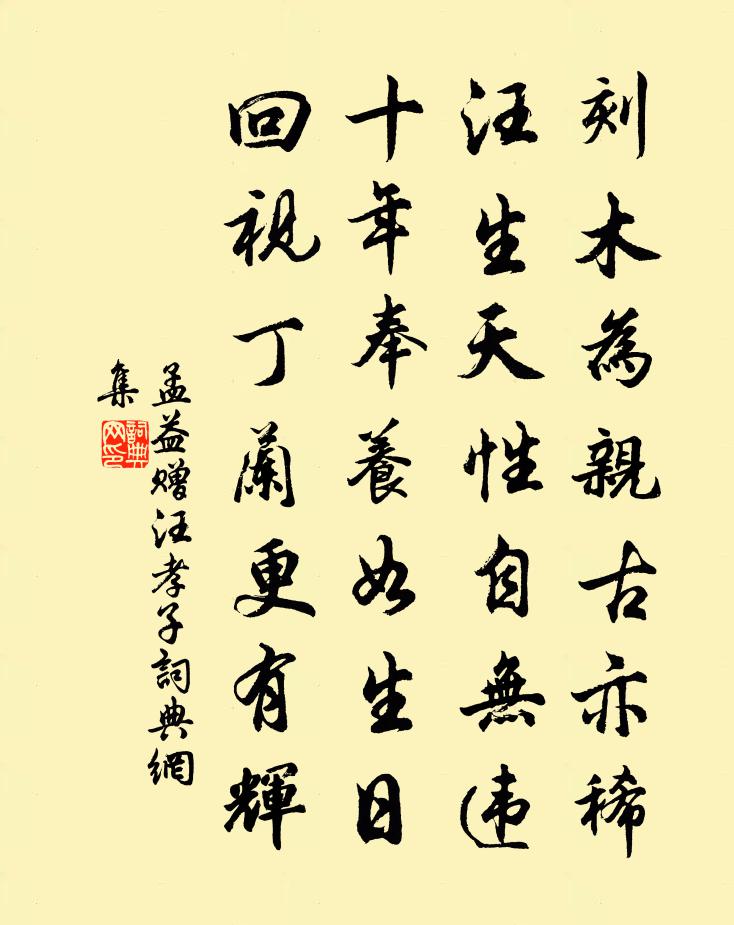 刻木為親古亦稀
汪生天性自無违
十年奉養如生日
回視丁蘭更有輝
孟益赠汪孝子詞典網
集
詞典
网印